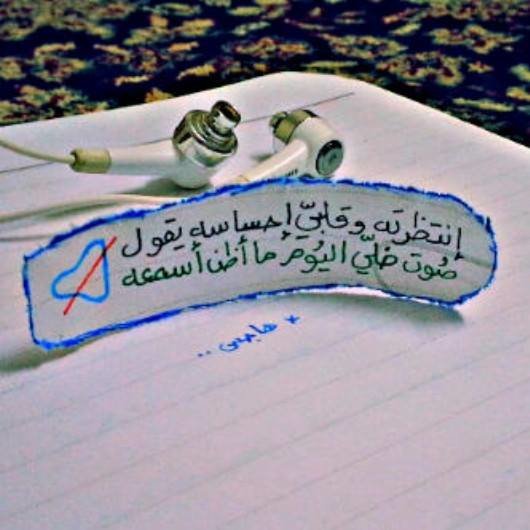 إنتظرته وقلبيّ إحساسه يقول
صُوت خليّ اليُومْ ما أظن أسمعه